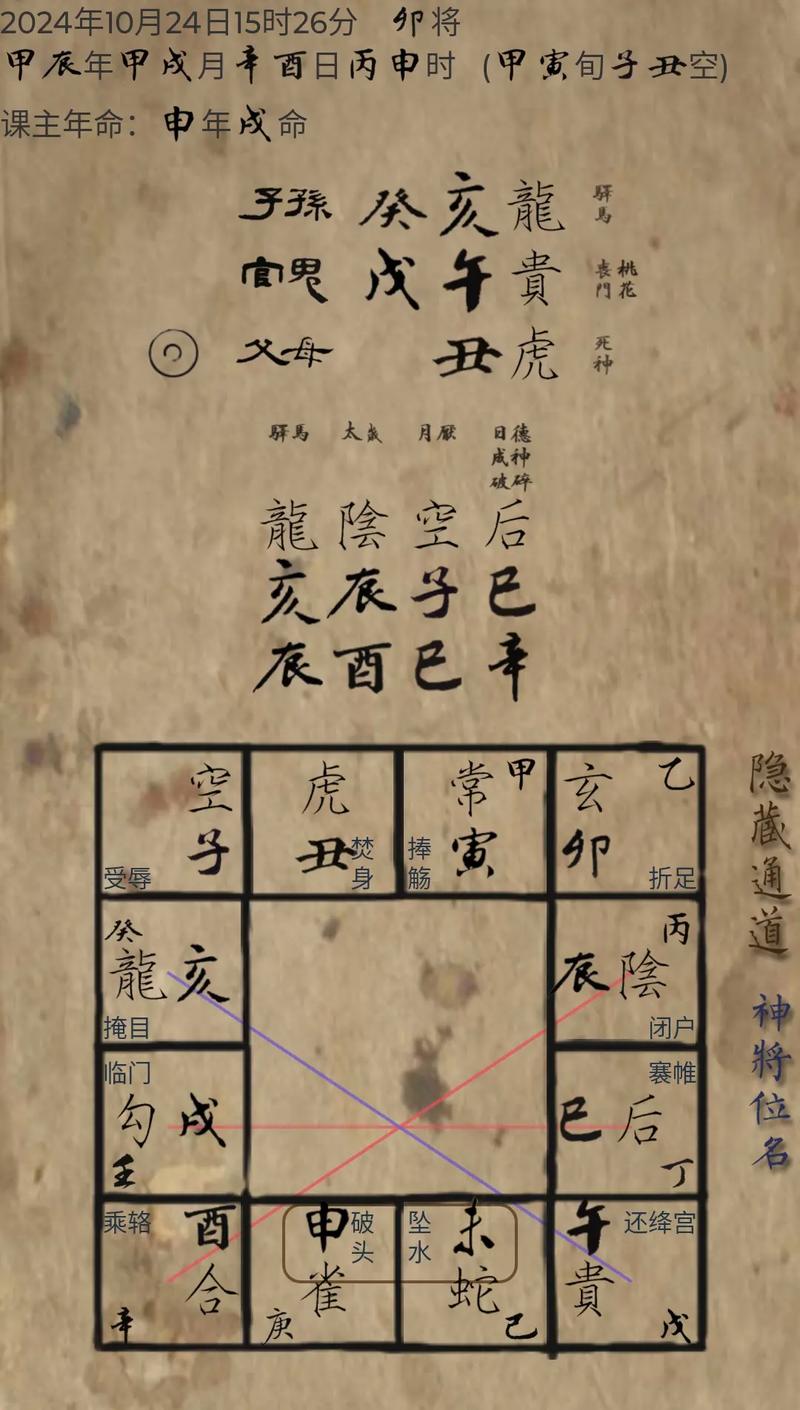 2024年10月24日15时26分 卯将
甲辰年甲戌月辛酉日丙申时 (甲寅旬子丑空)
课主年命: 申年戌命
子孫 癸亥龍 驛馬
官鬼 戊午貴 喪門 桃花
父母 丑虎 死神
驛馬 太歲 月厭 日德
成神
破碎
龍陰空后
亥辰子巳
辰酉巳辛
空 虎 常甲 玄乙
子 丑 寅 卯
受辱 焚身 捧觞 折足
癸 丙
龍亥 辰陰
掩目 闭户
临门 塞帷
勾戌 巳后
壬 丁
乘辂 酉 申 破头 坠水 未 午 还绛宫
合 雀 蛇 貴
辛 庚 己 戊
隐藏通道
神將位名